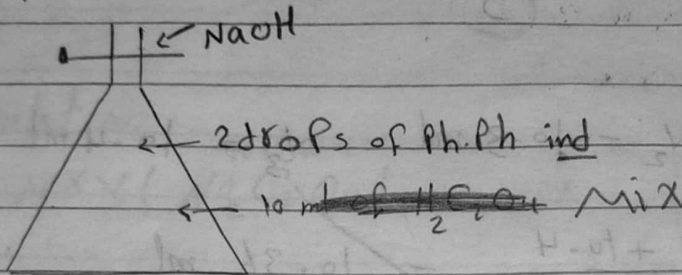 NaOH
2drops of Ph.Ph ind
10 ml of H2C2O4 Mix